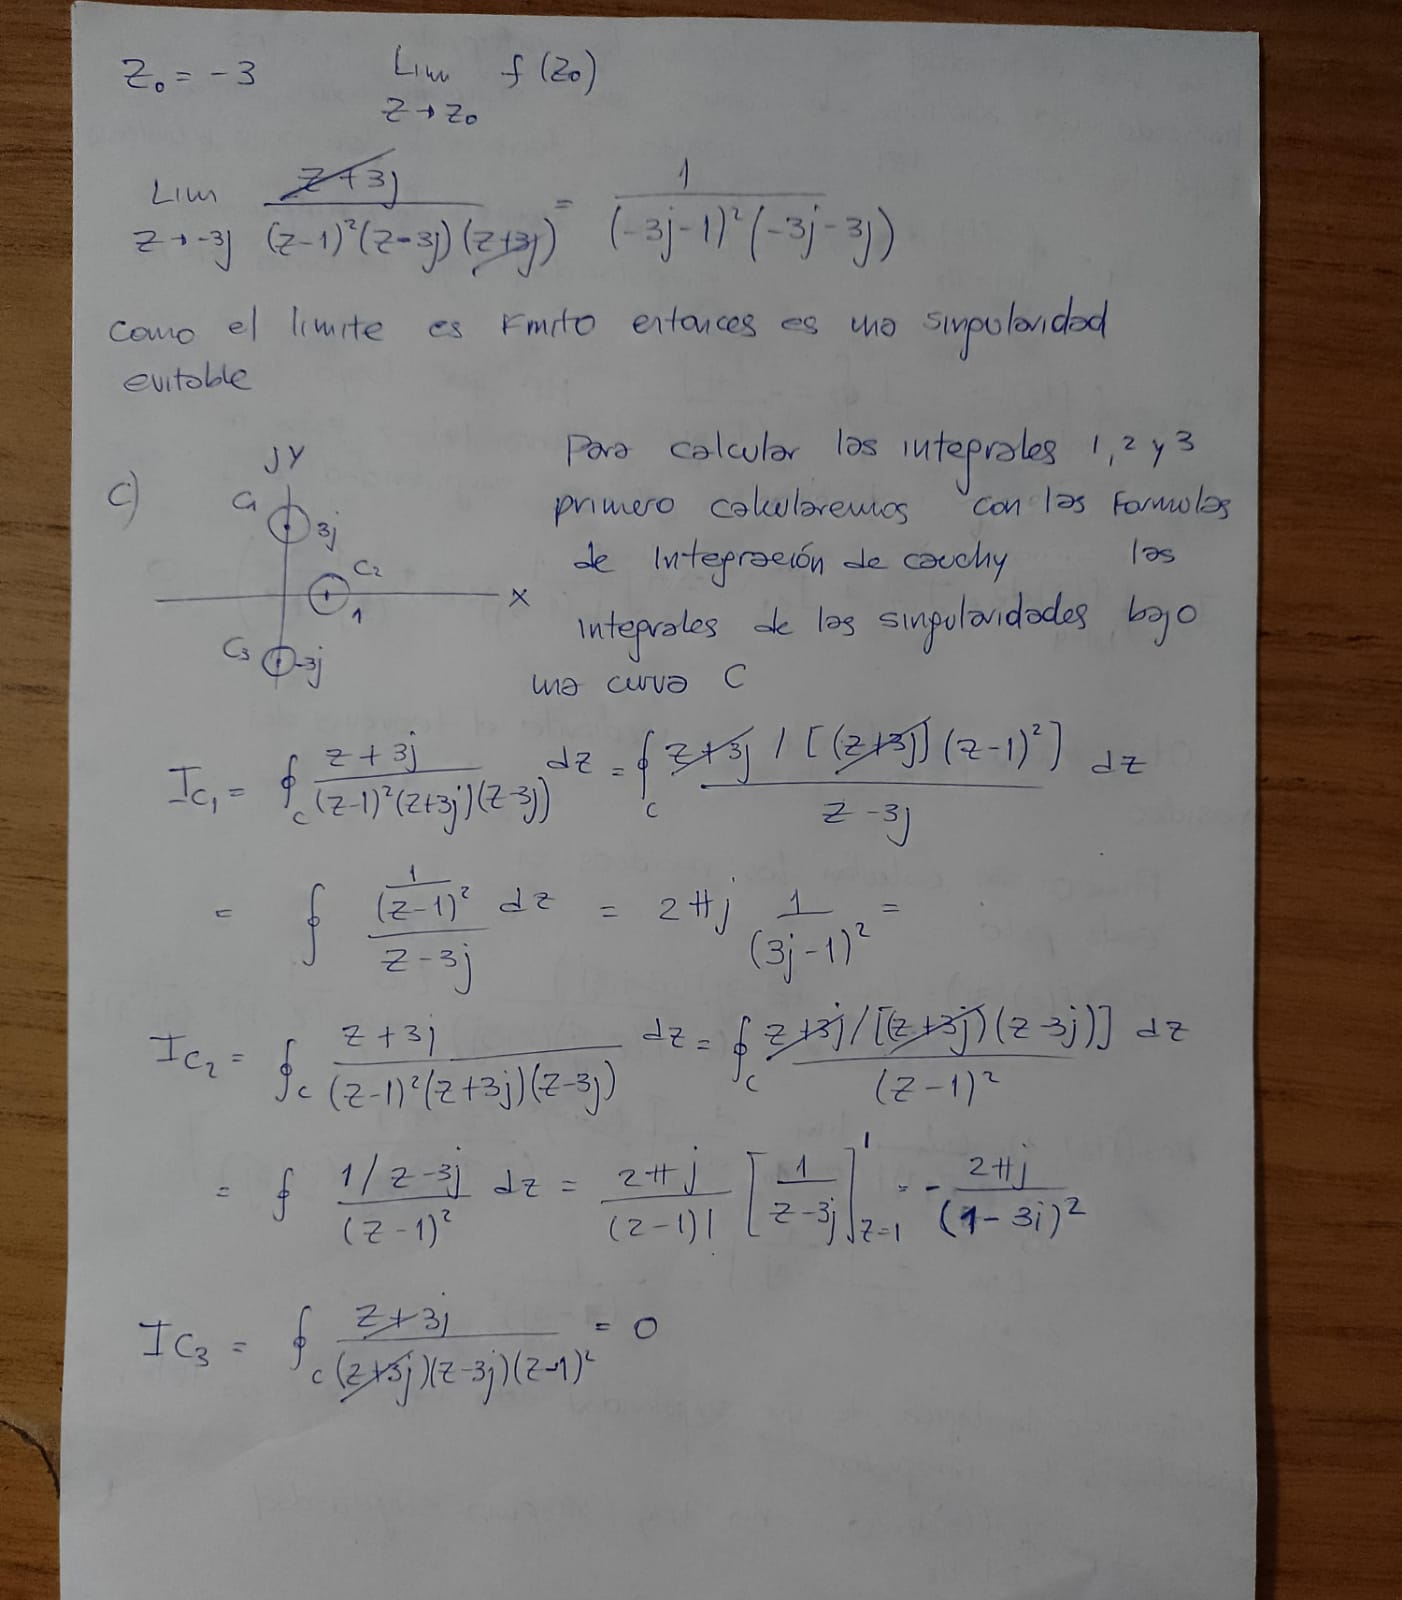 Z₀ = -3 Lim f(Z₀)
Z→Z₀
Lim z+3j / (z-1)²(z-3j)(z+3j) = 1 / (-3j-1)²(-3j-3j)
z→-3j
como el limite es Finito entonces es una singularidad
evitable
C) jY C₁ 3j C₂ 1 X C₃ -3j
Para calcular las integrales 1, 2 y 3
primero calcularemos con las Formulas
de Integración de cauchy las
integrales de las singularidades bajo
una curva C
I_C₁ = ∮_C z+3j / (z-1)²(z+3j)(z-3j) dz = ∮_C z+3j / [(z+3j)(z-1)²] / z-3j dz
= ∮ 1/(z-1)² / z-3j dz = 2πj 1/(3j-1)² =
I_C₂ = ∮_C z+3j / (z-1)²(z+3j)(z-3j) dz = ∮_C z+3j/[(z+3j)(z-3j)] / (z-1)² dz
= ∮ 1/z-3j / (z-1)² dz = 2πj / (2-1)! [1 / z-3j]'_z=1 = - 2πj / (1-3j)²
I_C₃ = ∮_C z+3j / (z+3j)(z-3j)(z-1)² = 0